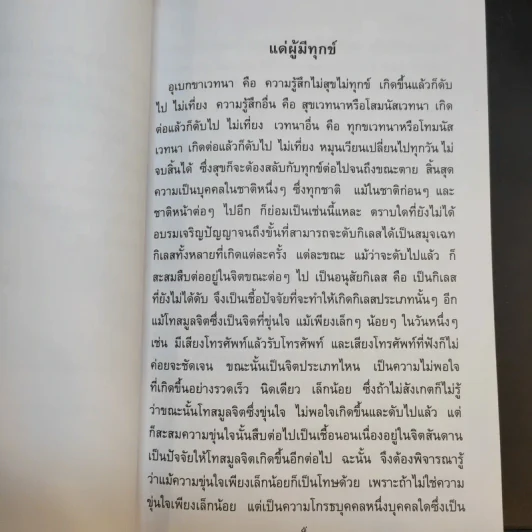 แด่ผู้มีทุกข์
อุเบกขาเวทนา คือ ความรู้สึกไม่สุขไม่ทุกข์ เกิดขึ้นแล้วก็ดับ
ไป ไม่เที่ยง ความรู้สึกอื่น คือ สุขเวทนาหรือโสมนัสเวทนา เกิด
ต่อแล้วก็ดับไป ไม่เที่ยง เวทนาอื่น คือ ทุกขเวทนาหรือโทมนัส
เวทนา เกิดต่อแล้วก็ดับไป ไม่เที่ยง หมุนเวียนเปลี่ยนไปทุกวัน ไม่
จบสิ้นได้ ซึ่งสุขก็จะต้องสลับกับทุกข์ต่อไปจนถึงขณะตาย สิ้นสุด
ความเป็นบุคคลในชาติหนึ่งๆ ซึ่งทุกชาติ แม้ในชาติก่อนๆ และ
ชาติหน้าต่อๆ ไปอีก ก็ย่อมเป็นเช่นนี้แหละ ตราบใดที่ยังไม่ได้
อบรมเจริญปัญญาจนถึงขั้นที่สามารถจะดับกิเลสได้เป็นสมุจเฉท
กิเลสทั้งหลายที่เกิดแต่ละครั้ง แต่ละขณะ แม้ว่าจะดับไปแล้ว ก็
สะสมสืบต่ออยู่ในจิตขณะต่อๆ ไป เป็นอนุสัยกิเลส คือ เป็นกิเลส
ที่ยังไม่ได้ดับ จึงเป็นเชื้อปัจจัยที่จะทำให้เกิดกิเลสประเภทนั้นๆ อีก
แม้โทสมูลจิตซึ่งเป็นจิตที่ขุ่นใจ แม้เพียงเล็กๆ น้อยๆ ในวันหนึ่งๆ
เช่น มีเสียงโทรศัพท์แล้วรับโทรศัพท์ และเสียงโทรศัพท์ที่ฟังก็ไม่
ค่อยจะชัดเจน ขณะนั้นเป็นจิตประเภทไหน เป็นความไม่พอใจ
ที่เกิดขึ้นอย่างรวดเร็ว นิดเดียว เล็กน้อย ซึ่งถ้าไม่สังเกตก็ไม่รู้
ว่าขณะนั้นโทสมูลจิตซึ่งขุ่นใจ ไม่พอใจเกิดขึ้นและดับไปแล้ว แต่
ก็สะสมความขุ่นใจนั้นสืบต่อไปเป็นเชื้อนอนเนื่องอยู่ในจิตสันดาน
เป็นปัจจัยให้โทสมูลจิตเกิดขึ้นอีกต่อไป ฉะนั้น จึงต้องพิจารณารู้
ว่าแม้ความขุ่นใจเพียงเล็กน้อยก็เป็นโทษด้วย เพราะถ้าไม่ใช่ความ
ขุ่นใจเพียงเล็กน้อย แต่เป็นความโกรธบุคคลหนึ่งบุคคลใดซึ่งเป็น